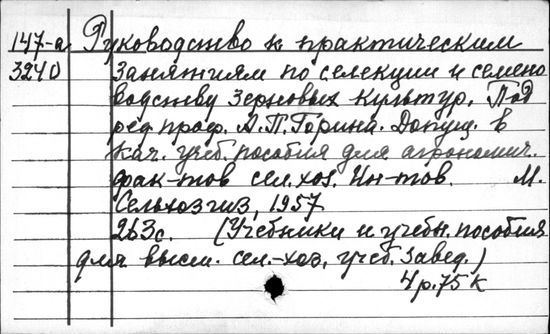 147-а Руководство к практическим
3240 занятиям по селекции и семено
водству зерновых культур. Под
ред. проф. А.П. Горина. Допущ. в
кач. учеб. пособия для агрономич.
фак-тов сел.хоз. Ин-тов. М.
Сельхозгиз, 1957
263с. (Учебники и учебн. пособия
для высш. сел.-хоз. учеб. завед.)
4р.75к